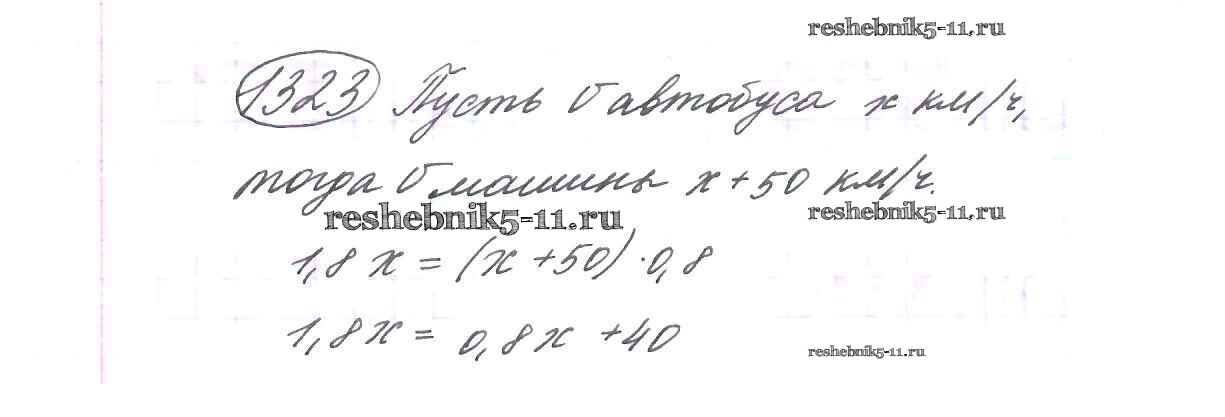 reshebnik5-11.ru
1323 Пусть v автобуса x км/ч,
тогда v машины x + 50 км/ч.
reshebnik5-11.ru
reshebnik5-11.ru
1,8 x = (x + 50) · 0,8
1,8x = 0,8x + 40
reshebnik5-11.ru